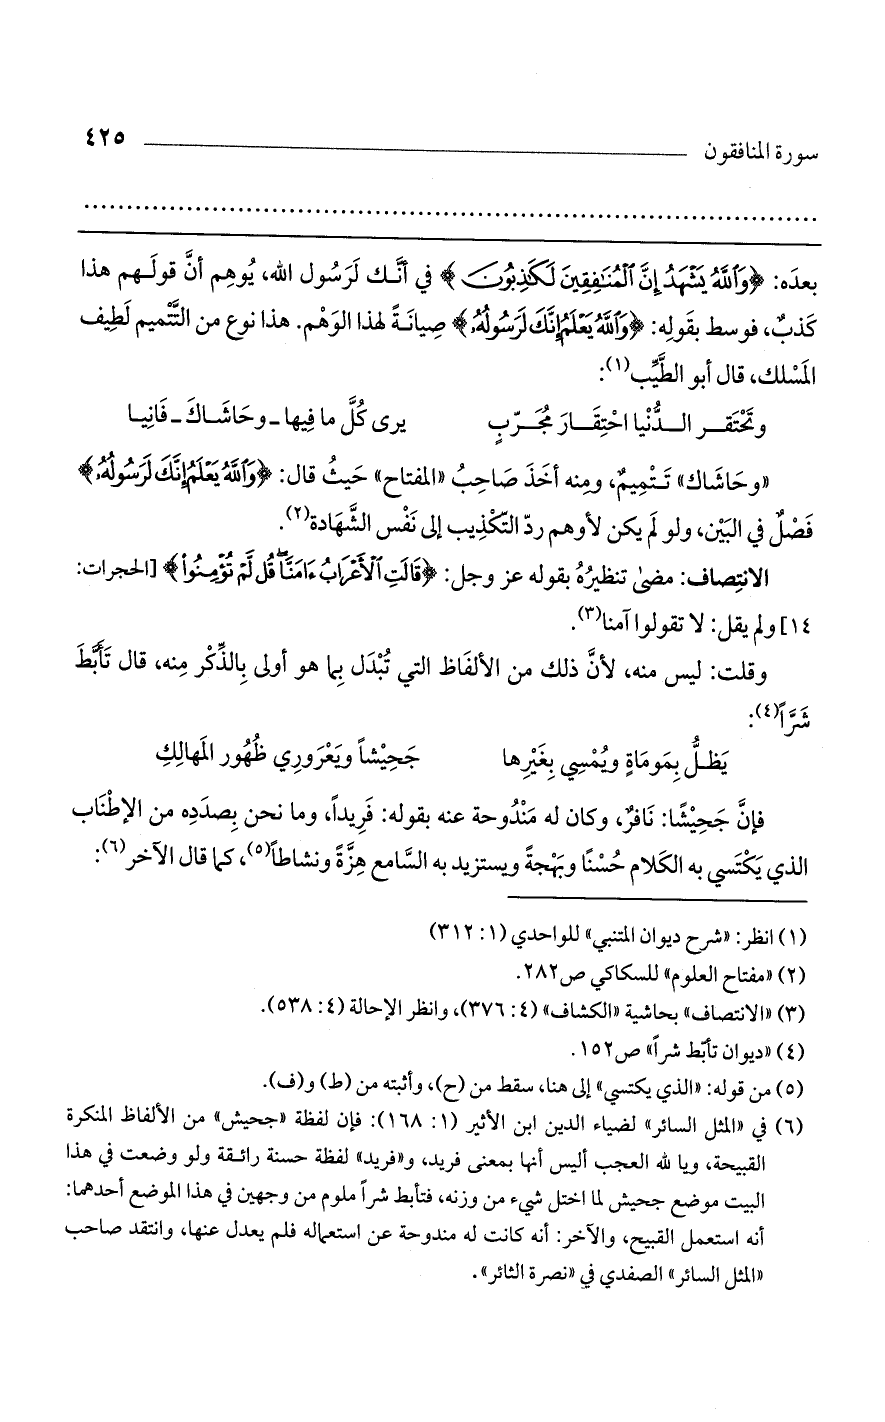 سورة المنافقون ٤٢٥
بعدَه: ﴿وَٱللَّهُ يَشْهَدُ إِنَّ ٱلْمُنَٰفِقِينَ لَكَٰذِبُونَ﴾ في أنَّك لَرَسُول الله، يُوهِم أنَّ قولَهم هذا
كَذبٌ، فوسط بقَولِه: ﴿وَٱللَّهُ يَعْلَمُ إِنَّكَ لَرَسُولُهُۥ﴾ صِيانَةً لهذا الوَهْم. هذا نوع من التَّتْميم لَطِيف
المَسْلك، قال أبو الطَّيِّب(١):
وتَحْتَقر الدُّنْيا احْتِقَارَ مُجَرّبٍ يرى كُلَّ ما فِيها ـ وحَاشَاكَ ـ فَانِيا
«وحَاشَاك» تَتْمِيمٌ، ومِنه أخَذَ صَاحِبُ «المفتاح» حَيثُ قال: ﴿وَٱللَّهُ يَعْلَمُ إِنَّكَ لَرَسُولُهُۥ﴾
فَصْلٌ في البَيْن، ولو لَم يكن لأوهم ردّ التّكْذِيب إلى نَفْس الشَّهَادة(٢).
الانتِصاف: مضىٰ تنظيرُهُ بقوله عز وجل: ﴿قَالَتِ ٱلْأَعْرَابُ ءَامَنَّا ۖ قُل لَّمْ تُؤْمِنُوا۟﴾ [الحجرات:
١٤] ولم يقل: لا تقولوا آمنا(٣).
وقلت: ليس منه، لأنَّ ذلك من الألفَاظ التي تُبْدَل بِما هو أولى بِالذِّكْر مِنه، قال تَأَبَّطَ
شَرَّاً(٤):
يَظلُّ بِمَومَاةٍ ويُمْسِي بِغَيْرِها جَحِيْشاً ويَعْرَوري ظُهُور المَهالِكِ
فإنَّ جَحِيْشًا: نَافرٌ، وكان له مَنْدُوحة عنه بقوله: فَرِيداً، وما نحن بِصدَدِه من الإطْنَاب
الذي يَكْتَسي به الكَلَام حُسْنًا وبَهْجةً ويستزيد به السَّامع هِزَّةً ونشاطاً(٥)، كما قال الآخر(٦):
(١) انظر: «شرح ديوان المتنبي» للواحدي (١: ٣١٢)
(٢) «مفتاح العلوم» للسكاكي ص٢٨٢.
(٣) «الانتصاف» بحاشية «الكشاف» (٤: ٣٧٦)، وانظر الإحالة (٤: ٥٣٨).
(٤) «ديوان تأبّط شراً» ص١٥٢.
(٥) من قوله: «الذي يكتسي» إلى هنا، سقط من (ح)، وأثبته من (ط) و(ف).
(٦) في «المثل السائر» لضياء الدين ابن الأثير (١: ١٦٨): فإن لفظة «جحيش» من الألفاظ المنكرة
القبيحة، ويا لله العجب أليس أنها بمعنى فريد، و«فريد» لفظة حسنة رائقة ولو وضعت في هذا
البيت موضع جحيش لما اختل شيء من وزنه، فتأبط شراً ملوم من وجهين في هذا الموضع أحدهما:
أنه استعمل القبيح، والآخر: أنه كانت له مندوحة عن استعماله فلم يعدل عنها، وانتقد صاحب
«المثل السائر» الصفدي في «نصرة الثائر».